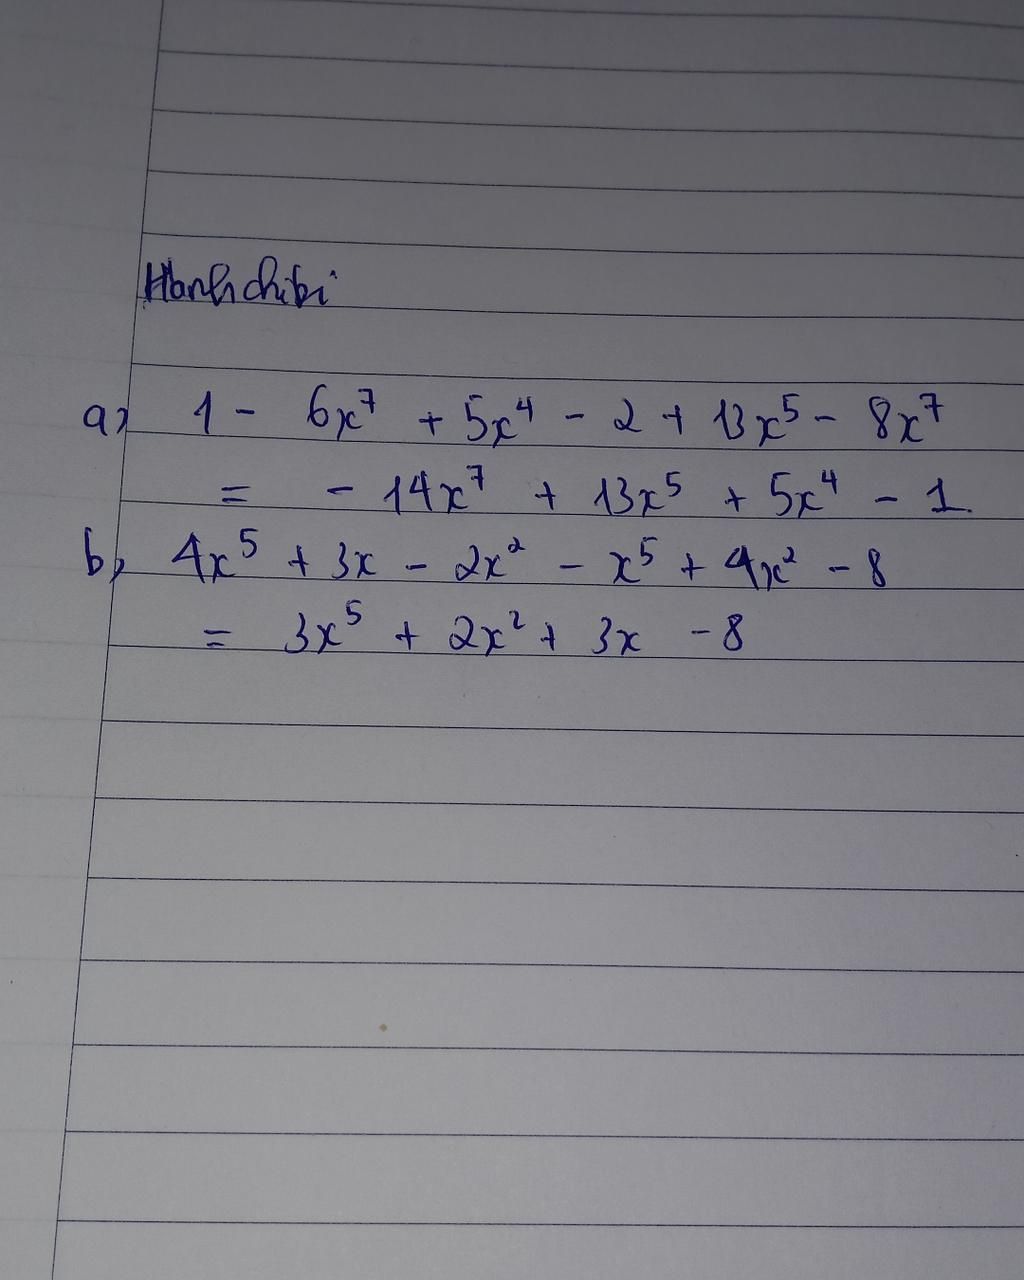 Hanhchibi
a, 1 - 6x⁷ + 5x⁴ - 2 + 13x⁵ - 8x⁷
= - 14x⁷ + 13x⁵ + 5x⁴ - 1.
b, 4x⁵ + 3x - 2x² - x⁵ + 4x² - 8
= 3x⁵ + 2x² + 3x - 8